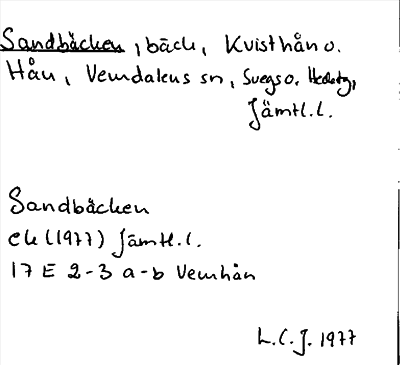 Sandbäcken, bäck, Kvisthån o.
Hån, Vemdalens sn, Svegs o. Hedetg,
Jämtl.l.
Sandbäcken
ek (1977) Jämtl.l.
17 E 2-3 a-b Vemhån
L.C.J. 1977